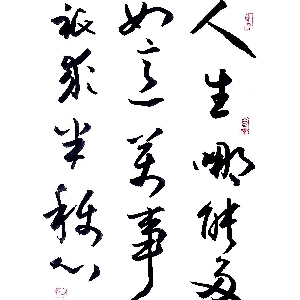 人生哪能多
如意万事
祗求半称心